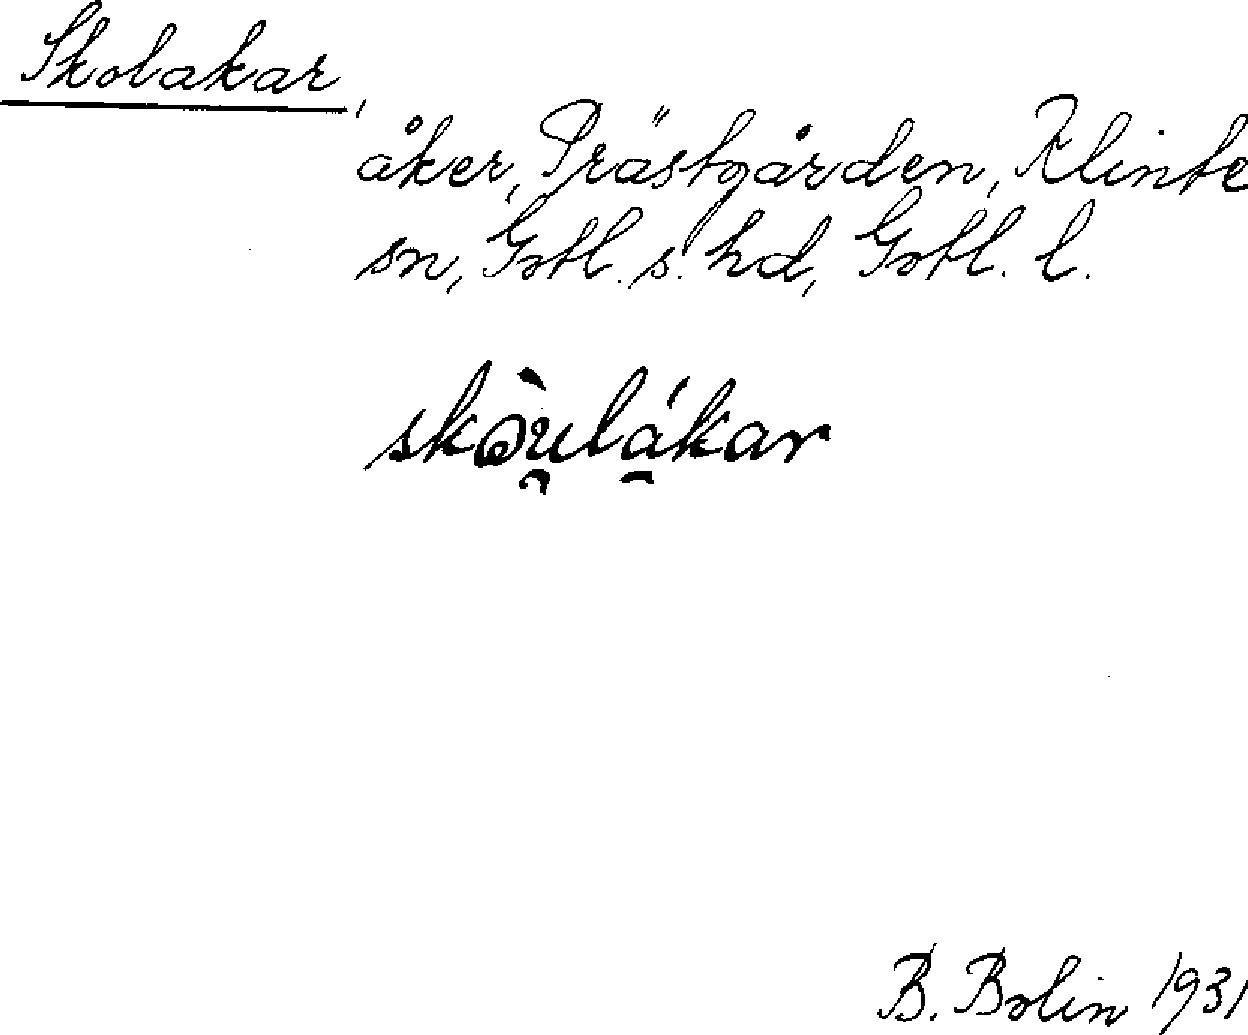 Skolakar,
åker, Prästgården, Klinte
sn, Gotl. s. hd, Gotl. l.
skòu̯lá̱kar
B. Bolin 1931